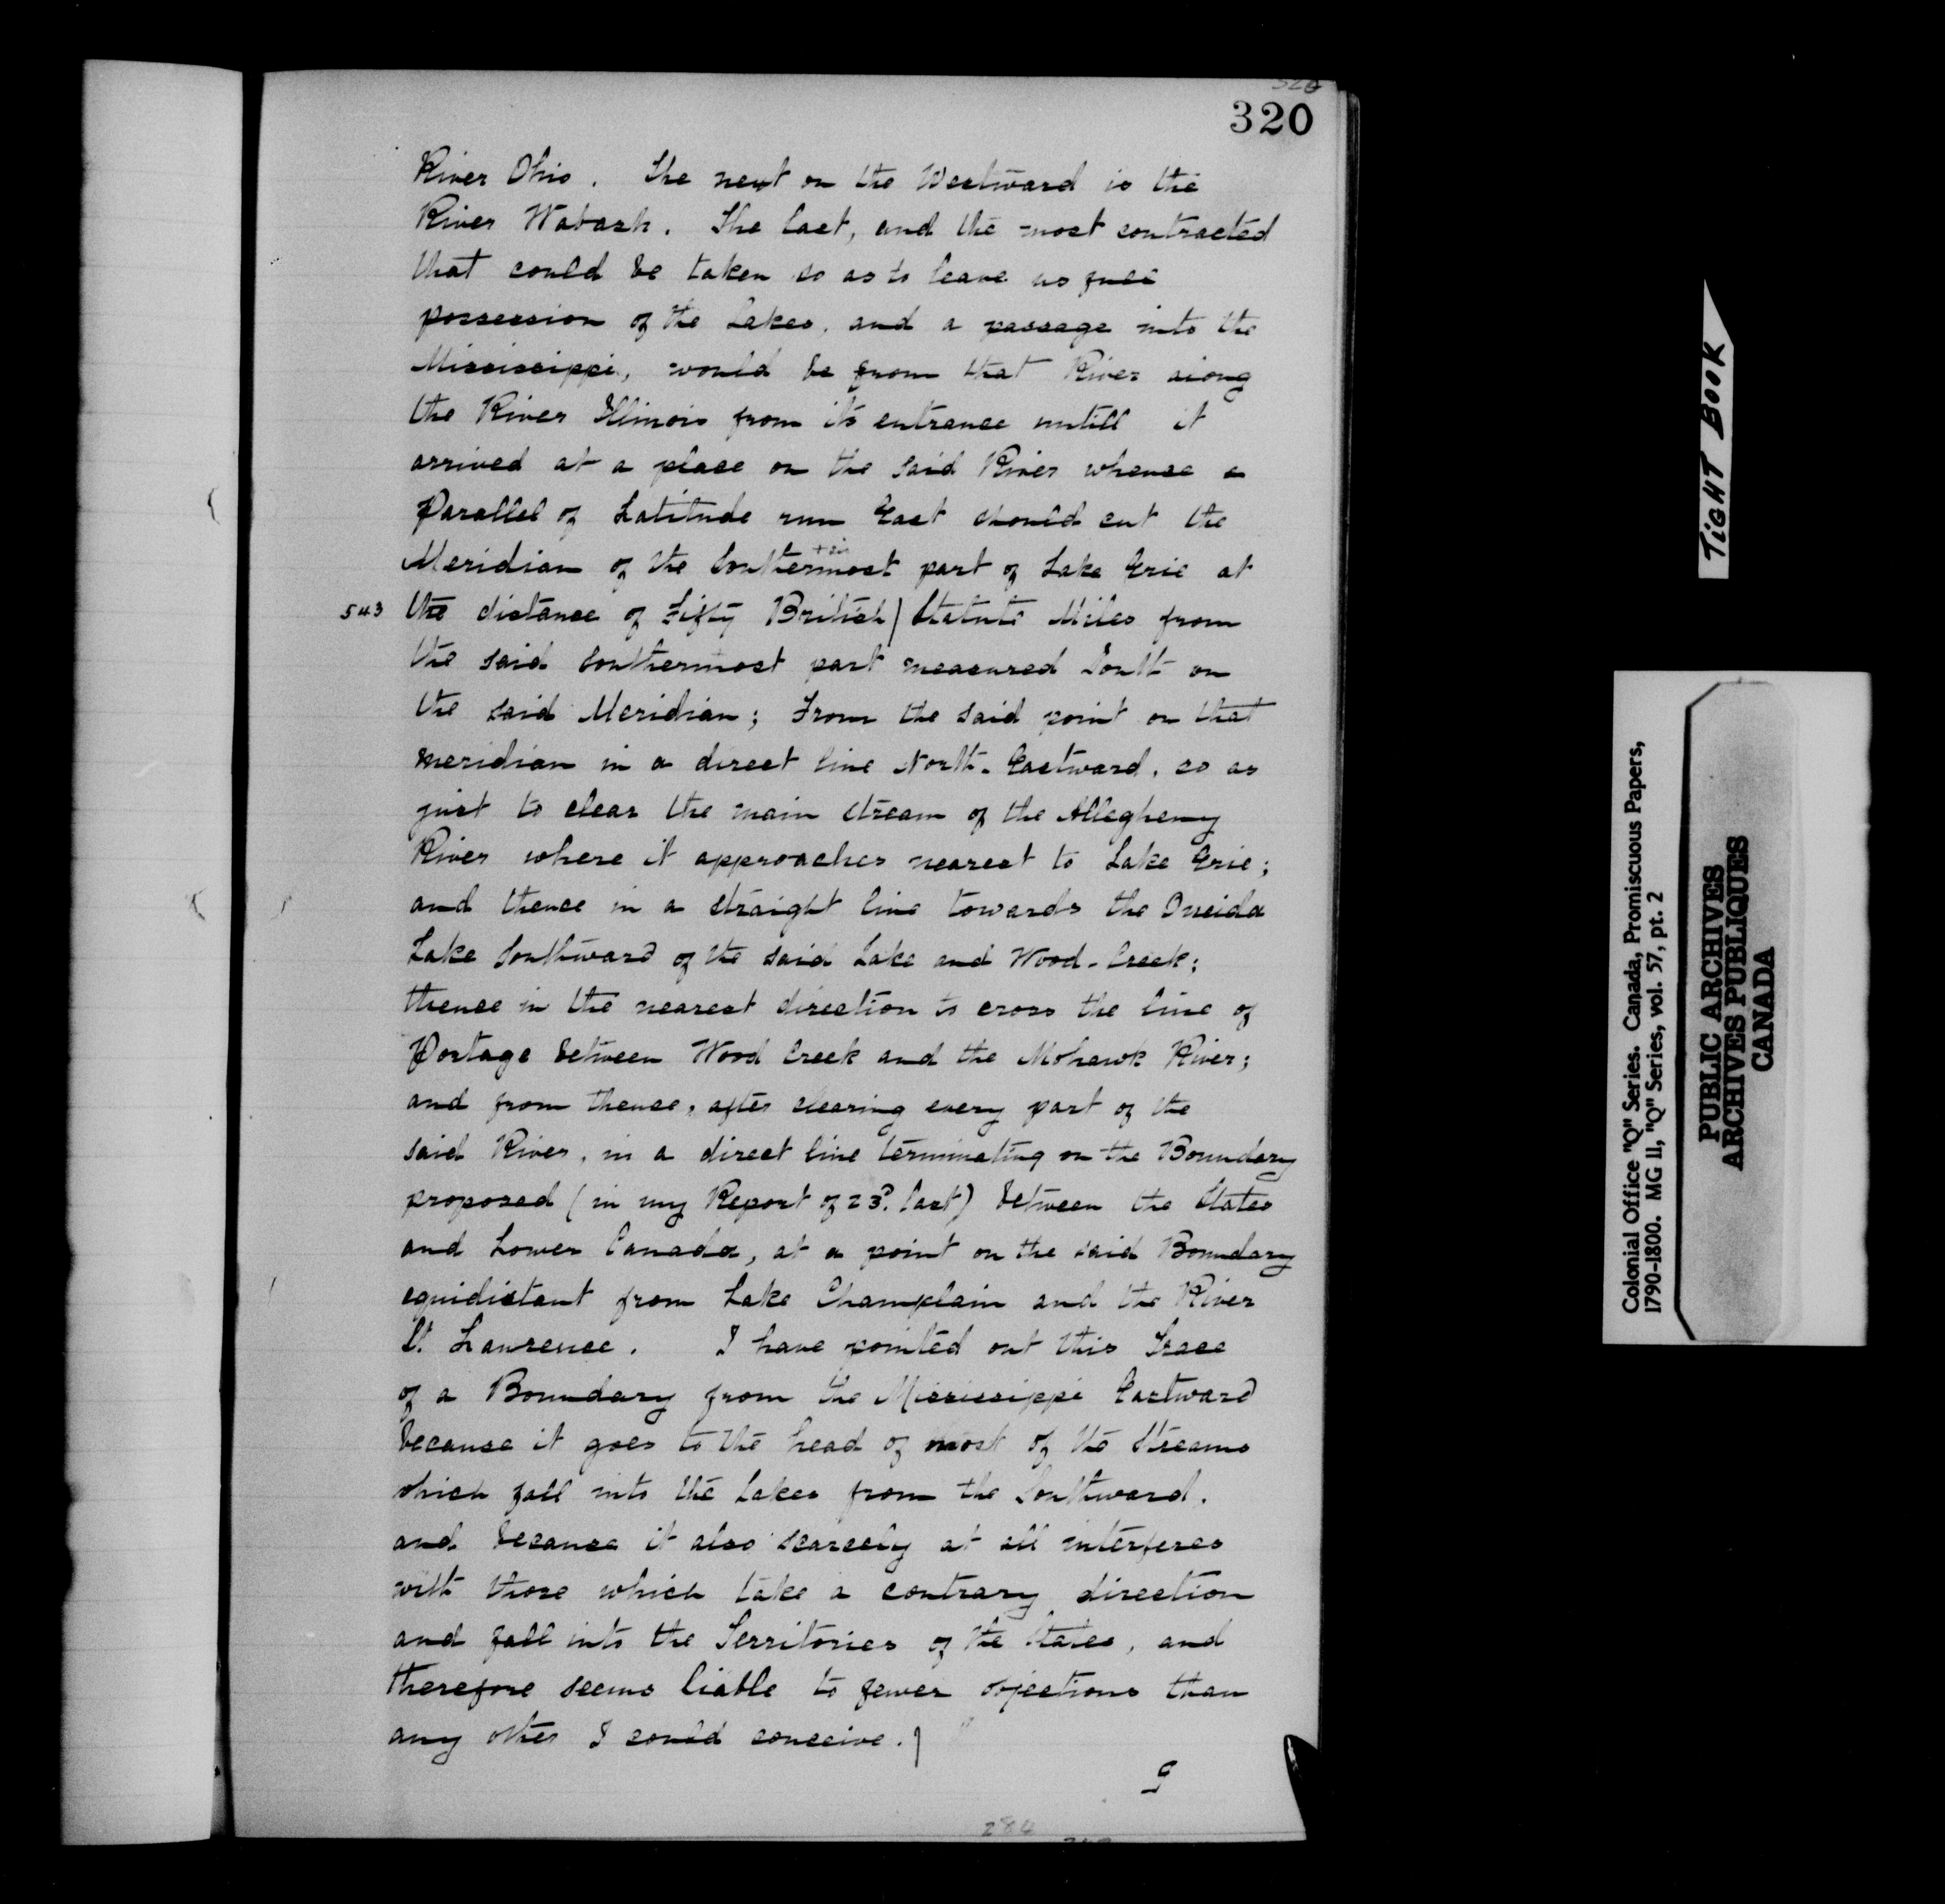 320
River Ohio. The next on the Westward is the
River Wabash. The last, and the most contracted
that could be taken so as to leave us full
possession of the Lakes, and a passage into the
Mississippi, would be from that River along
the River Illinois from its entrance untill it
arrived at a place on the said River whence a
Parallel of Latitude run East should cut the
Meridian of the Southermost part of Lake Erie at
543 the distance of Fifty British / Statute Miles from
the said southermost part measured South on
the said Meridian; From the said point on that
meridian in a direct line North-Eastward, so as
just to clear the main stream of the Allegheny
River where it approaches nearest to Lake Erie;
and thence in a straight line towards the Oneida
Lake Southward of the said Lake and Wood-Creek;
thence in the nearest direction to cross the line of
Portage between Wood Creek and the Mohawk River;
and from thence, after clearing every part of the
said River, in a direct line terminating on the Boundary
proposed (in my Report of 23d. last) between the States
and Lower Canada, at a point on the said Boundary
equidistant from Lake Champlain and the River
St. Lawrence. I have pointed out this Trace
of a Boundary from the Mississippi Eastward
because it goes to the head of most of the streams
which fall into the Lakes from the Southward,
and because it also scarcely at all interferes
with those which take a contrary direction
and fall into the Territories of the States, and
therefore seems liable to fewer objections than
any other I could conceive.
I
284
TIGHT BOOK
Colonial Office "Q" Series. Canada, Promiscuous Papers,
1790-1800. MG 11, "Q" Series, vol. 57, pt. 2
PUBLIC ARCHIVES
ARCHIVES PUBLIQUES
CANADA